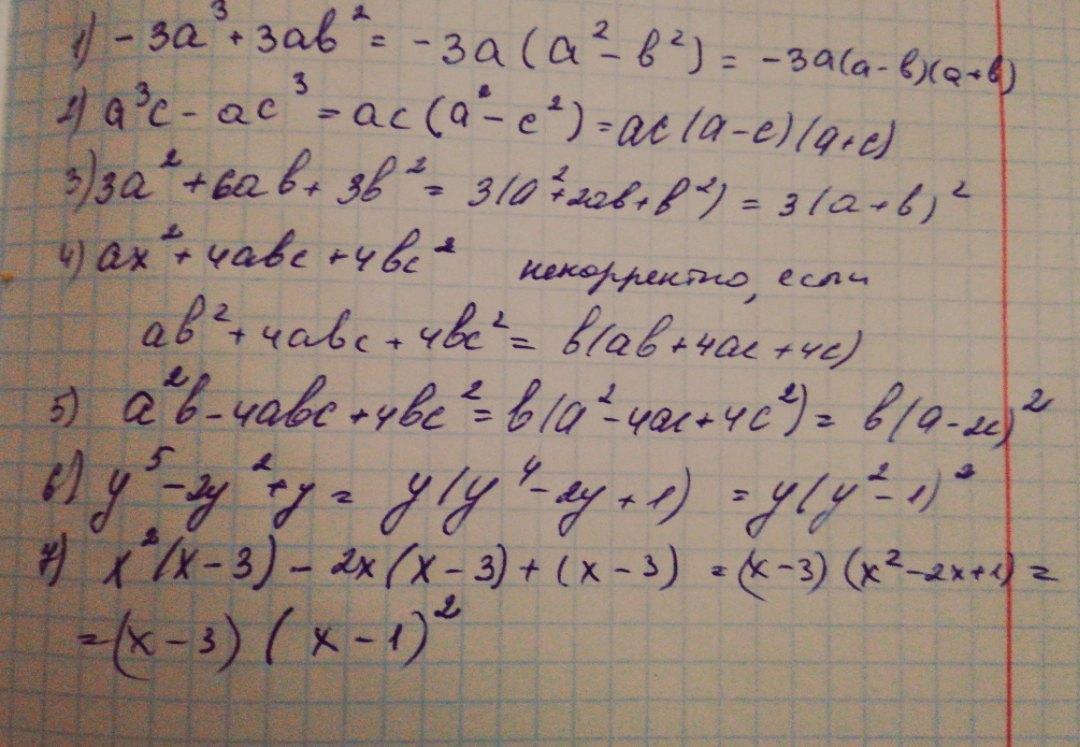 1) -3a³ + 3ab² = -3a(a² - b²) = -3a(a-b)(a+b)
2) a³c - ac³ = ac(a² - c²) = ac(a-c)(a+c)
3) 3a² + 6ab + 3b² = 3(a² + 2ab + b²) = 3(a+b)²
4) ax² + 4abc + 4bc² некорректно, если
ab² + 4abc + 4bc² = b(ab + 4ac + 4c)
5) a²b - 4abc + 4bc² = b(a² - 4ac + 4c²) = b(a - 2c)²
6) y⁵ - 2y² + y = y(y⁴ - 2y + 1) = y(y² - 1)²
7) x²(x-3) - 2x(x-3) + (x-3) = (x-3)(x² - 2x + 1) =
= (x-3)(x-1)²